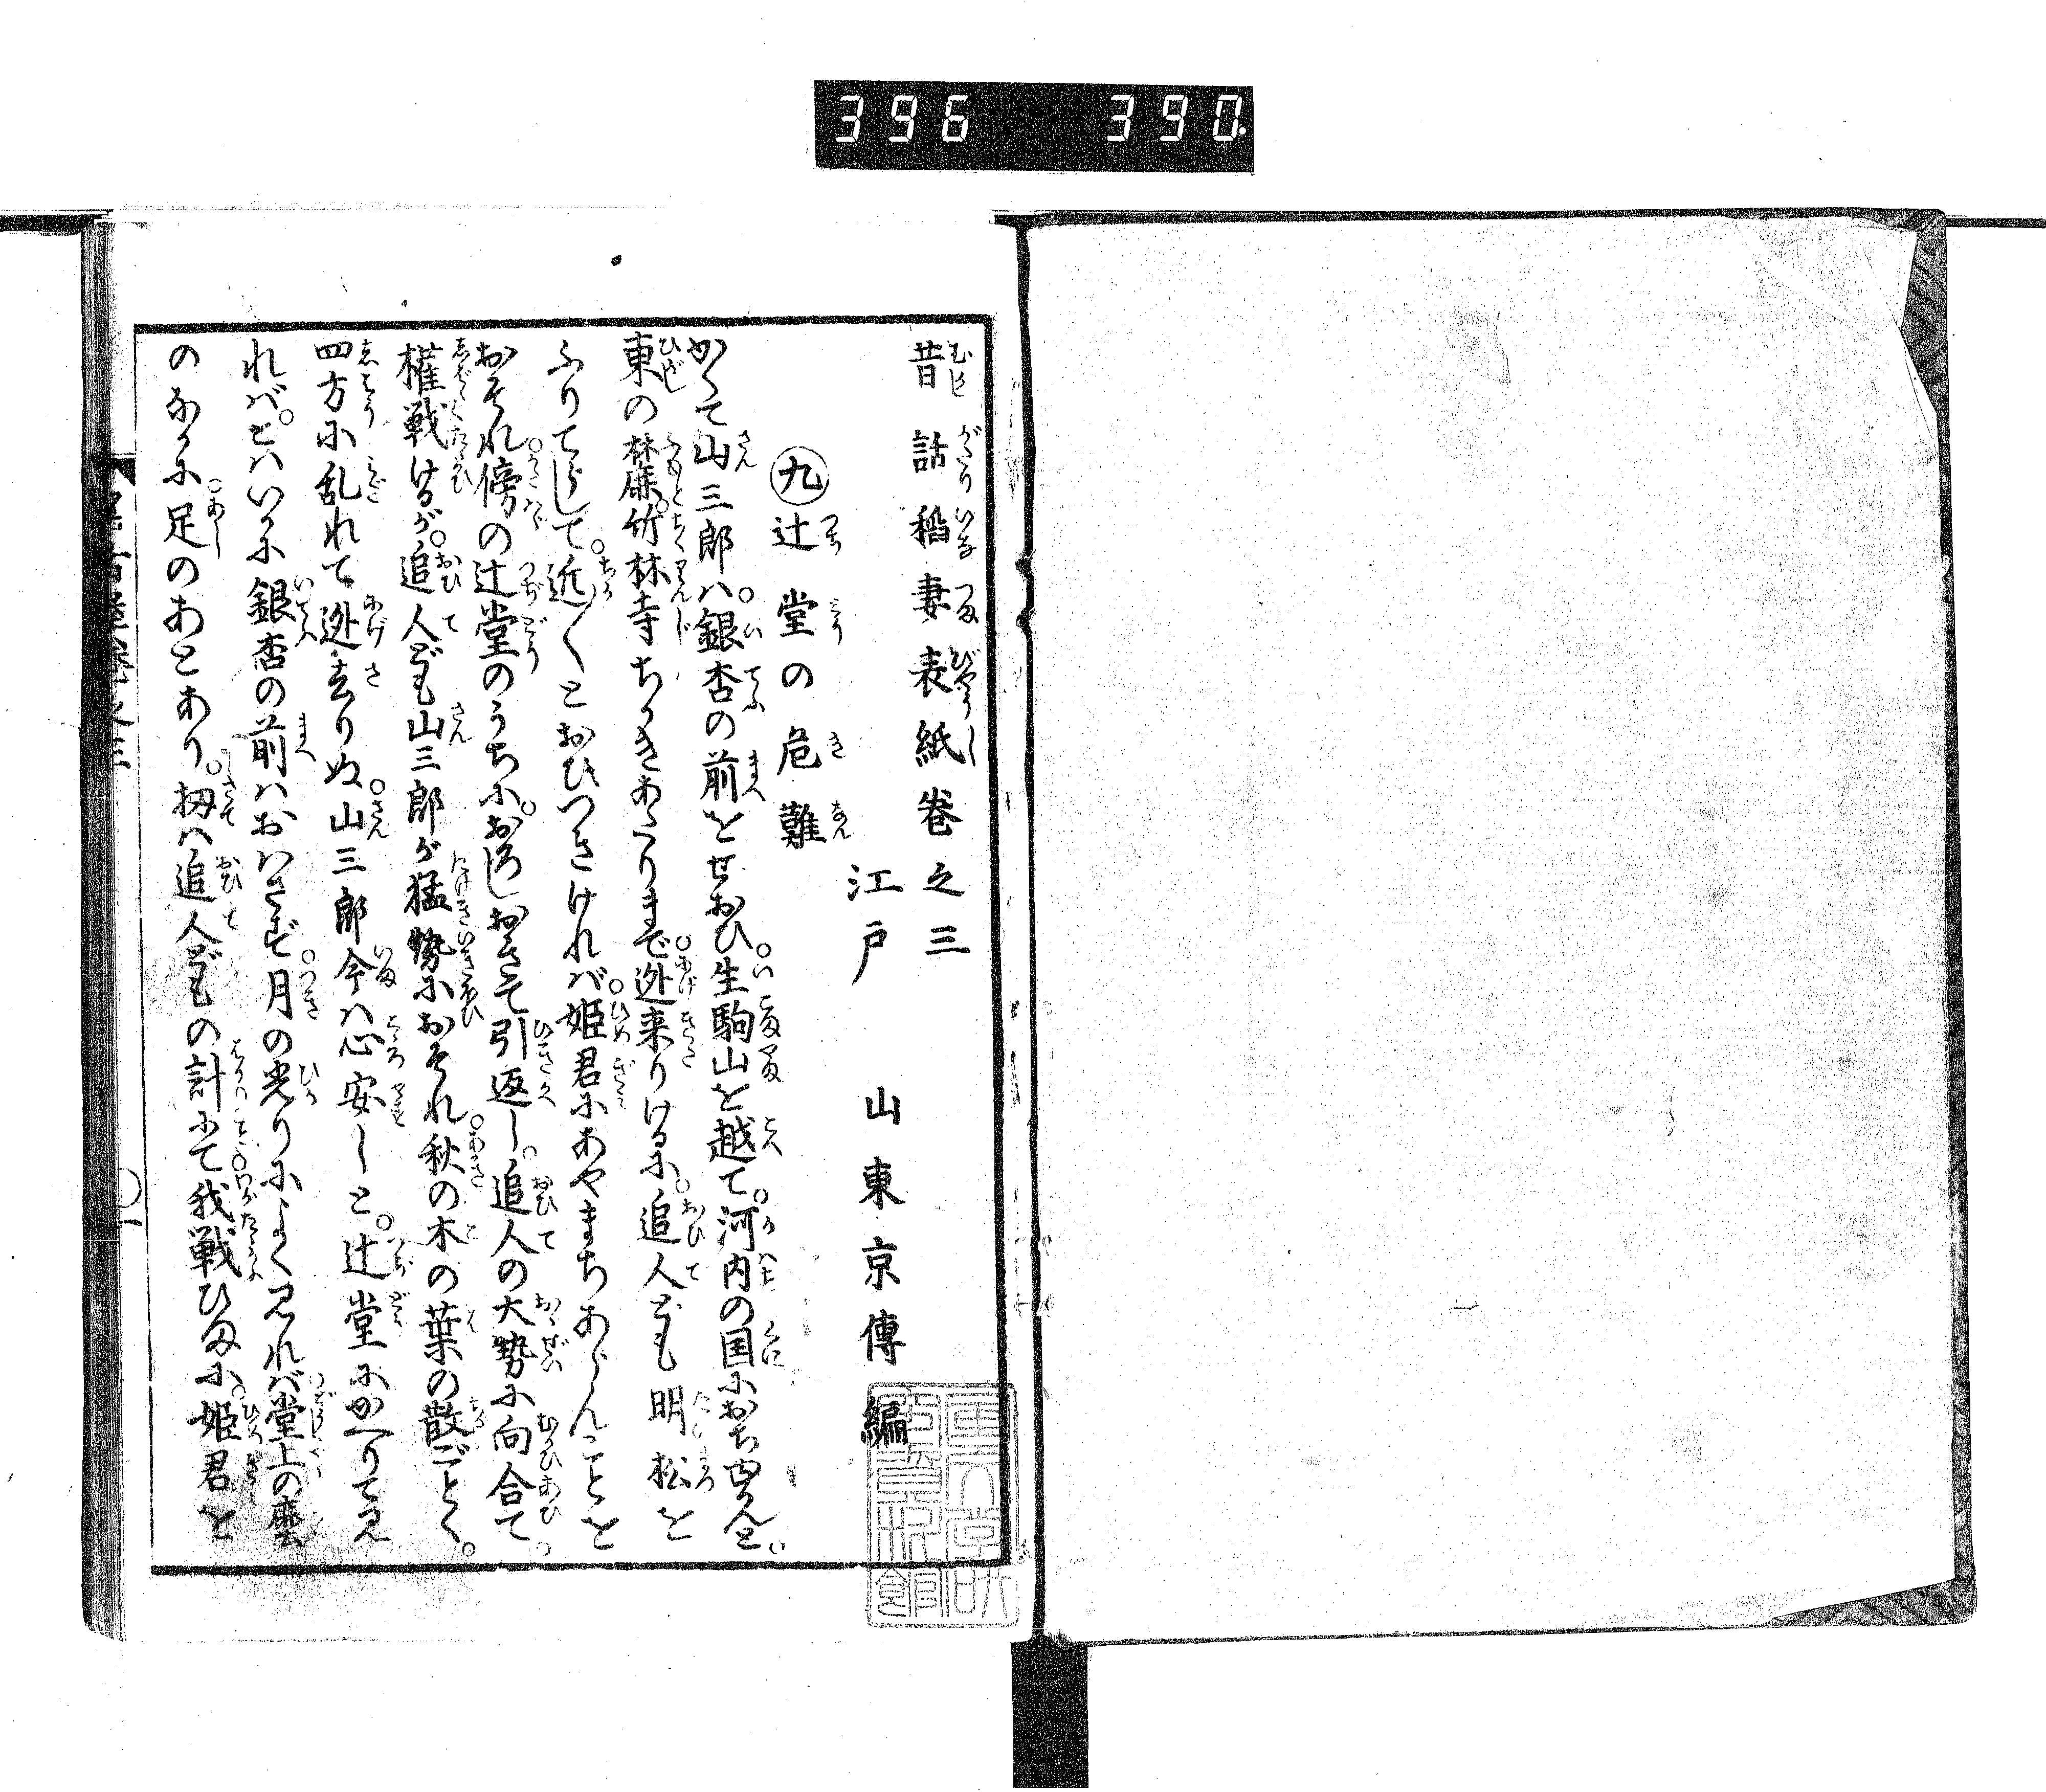 396 390
昔話稲妻表紙巻之三
江戸 山東京傳編
九 辻堂の危難
かくて山三郎ハ銀杏の前をせおひ。生駒山を越て。河内の国におちゆかんと。
東の麓。竹林寺ちかきあたりまで。迯来りけるに。追人ども明松を
ふりてらして。近〳〵とおひつきけれバ。姫君にあやまちあらんことを
おそれ。傍の辻堂のうちに。おろしおきて引返し。追人の大勢に向合て。
権戦けるが。追人ども山三郎が猛勢におそれ。秋の木の葉の散ごとく。
四方に乱れて迯去りぬ。山三郎今ハ心安しと。辻堂にかへりて見
れバ。こハいかに銀杏の前ハおハさず。月の光りによく見れバ。堂上の塵
のなかに。足のあとあり。扨ハ追人どもの計にて。我戦ひまに。姫君を